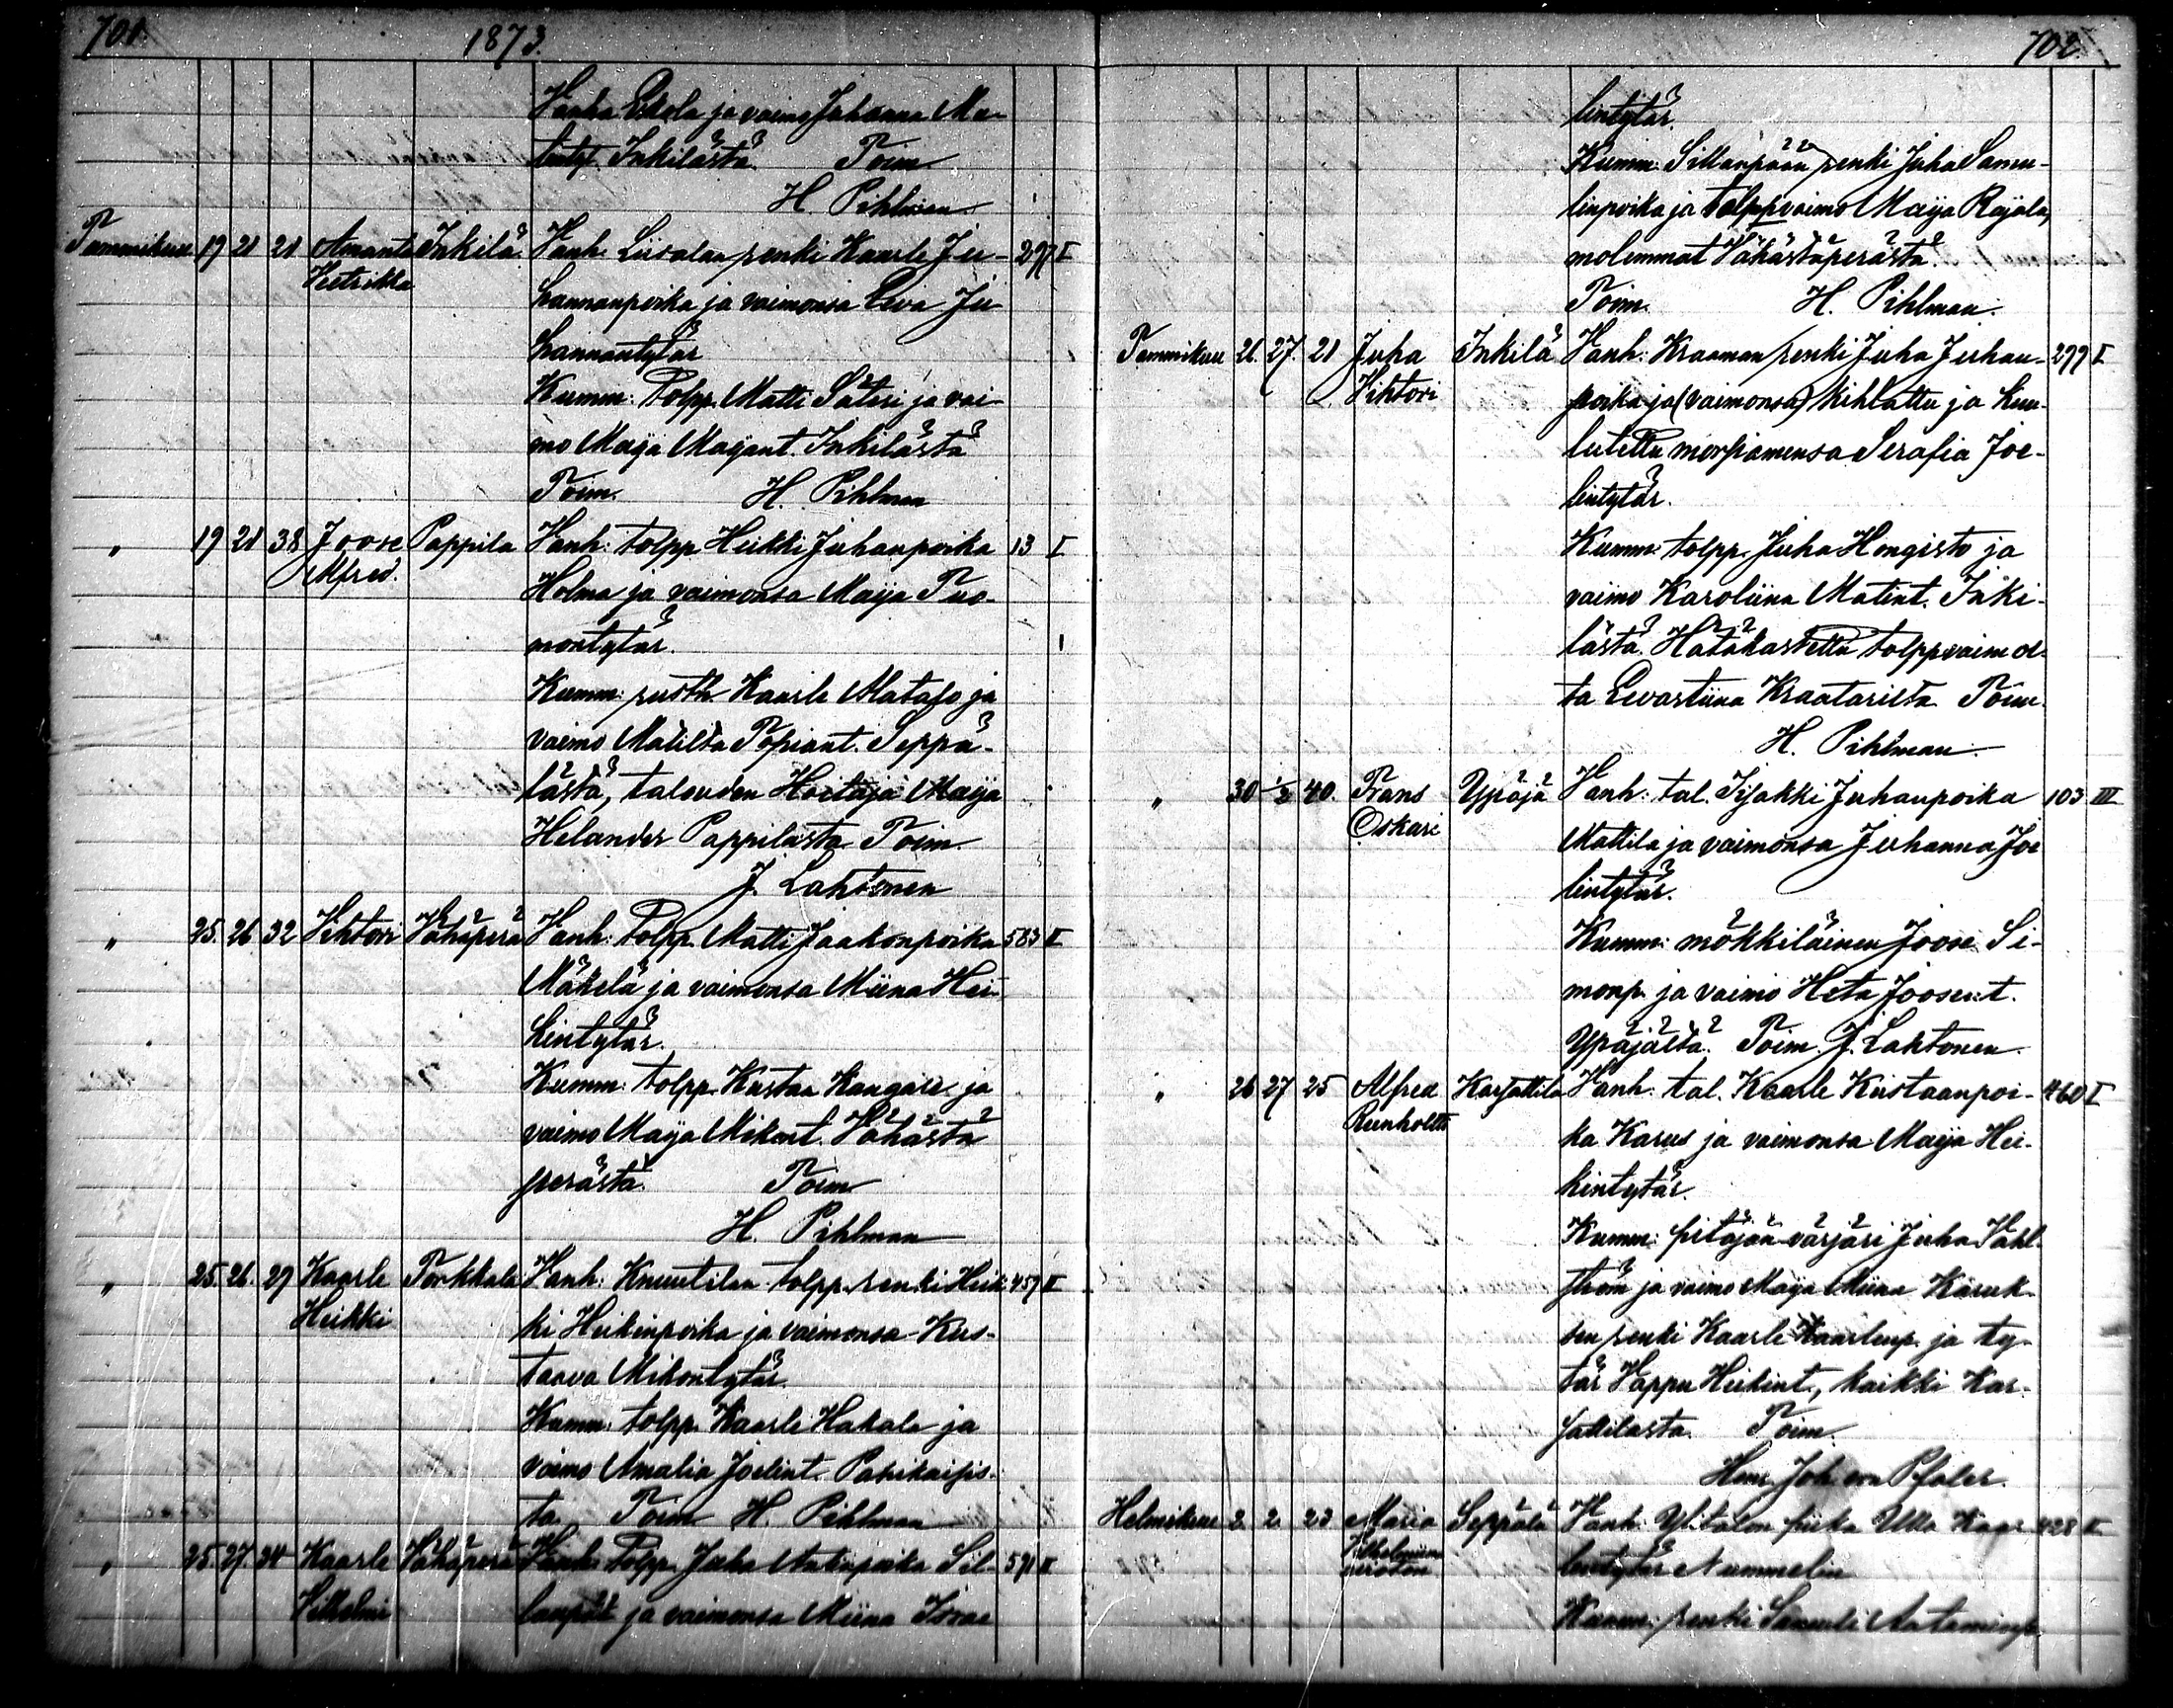 701.
1873.
Vanha Eskola ja vaimo Johanna Ma-
tintyt. Inkilästä. Toim.
H. Pihlman
Tammikuu 19 21 21 Amanta Inkilä Vanh. Liisalan renki Kaarle Ju- 297 I
Hetrikka hannanpoika ja vaimonsa Eeva Ju
hannantytär
Kumm: Tolpp. Matti Säteri ja vai-
mo Maija Maijant. Inkilästä
Toim. H. Pihlman
„ 19 21 38 Joose Pappila Vanh: tolpp Heikki Juhanpoika 13 I
Alfred. Holma ja vaimonsa Maija Tuo-
montytär.
Kumm: rusth. Kaarle Alatalo ja
vaimo Matilta Topiant. Seppä-
lästä, talouden Hoitaja Maija
Helander Pappilasta Toim.
J. Lahtonen
„ 25. 26 32 Vihtori Vähäperä Vanh: Tolpp. Matti Jaakonpoika 583 II
Mäkelä ja vaimonsa Miina Hei-
kintytär.
Kumm: tolpp. Kustaa Kangare ja
vaimo Maija Mikont. Vähästä
perästä. Toim
H. Pihlman
„ 25. 26. 29 Kaarle Torkkala Vanh: Knuutilan tolpp. renki Heik- 457 II
Heikki ki Heikinpoika ja vaimonsa Kus-
taava Mikontytär.
Kumm: tolpp. Kaarle Hakala ja
vaimo Amalia Joelint.
ta Toim H. Pihlman
„ 25. 27. 34 Kaarle Vähäperä Vanh: Tolpp. Juha Antinpoika Sil- 591 II
Vilhelmi lanpää ja vaimonsa Miina Israe
702.
lintytär.
Kumm: Sillanpään renki Juha Samu-
linpoika ja tolppvaimo Maija Rajala,
molemmat Vähästäperästä.
Toim. H. Pihlman.
Tammikuu 26. 27. 21 Juha Inkilä Vanh: Kraaman renki Juha Juhan- 299 I
Vihtori poika ja (vaimonsa) kihlattu ja kuu-
lutettu morsiamensa Serafia Joe-
lintytär.
Kumm: tolpp. Juha Hongisto ja
vaimo Karoliina Matint. Inki-
lästä. Hätäkastettu tolppvaimol-
ta Eevastiina Kraatarilta Toim.
H. Pihlman
„ 30 1/2 40. Frans Ypäjä Vanh: tal. Iisakki Juhanpoika 103 III
Oskari Mattila ja vaimonsa Juhanna Joe
lintytär.
Kumm: mökkiläinen Joose Si-
monp. ja vaimo Heta Joosent.
Ypäjältä. Toim. J. Lahtonen
„ 26 27 25 Alfred Karjattila Vanh: tal. Kaarle Kustaanpoi- 460 I
Reinholtti ka Karus ja vaimonsa Maija Hei-
kintytär.
Kumm: pitäjän värjäri Juha
ström ja vaimo Maija Miina Karuk-
sen renki Kaarle Kaarlenp. ja ty-
tär Vappu Heikint., kaikki Kar-
jattilasta. Toim.
Henr. Joh. von Pfaler.
Helmikuu 2. 2. 23 Maria Seppälä Vanh: Ylitalon piika Ulla Kaar- 428 II
Vilhelmiina lentytär Nummelin
aviotoin Kumm: renki Samuli Aataminp.